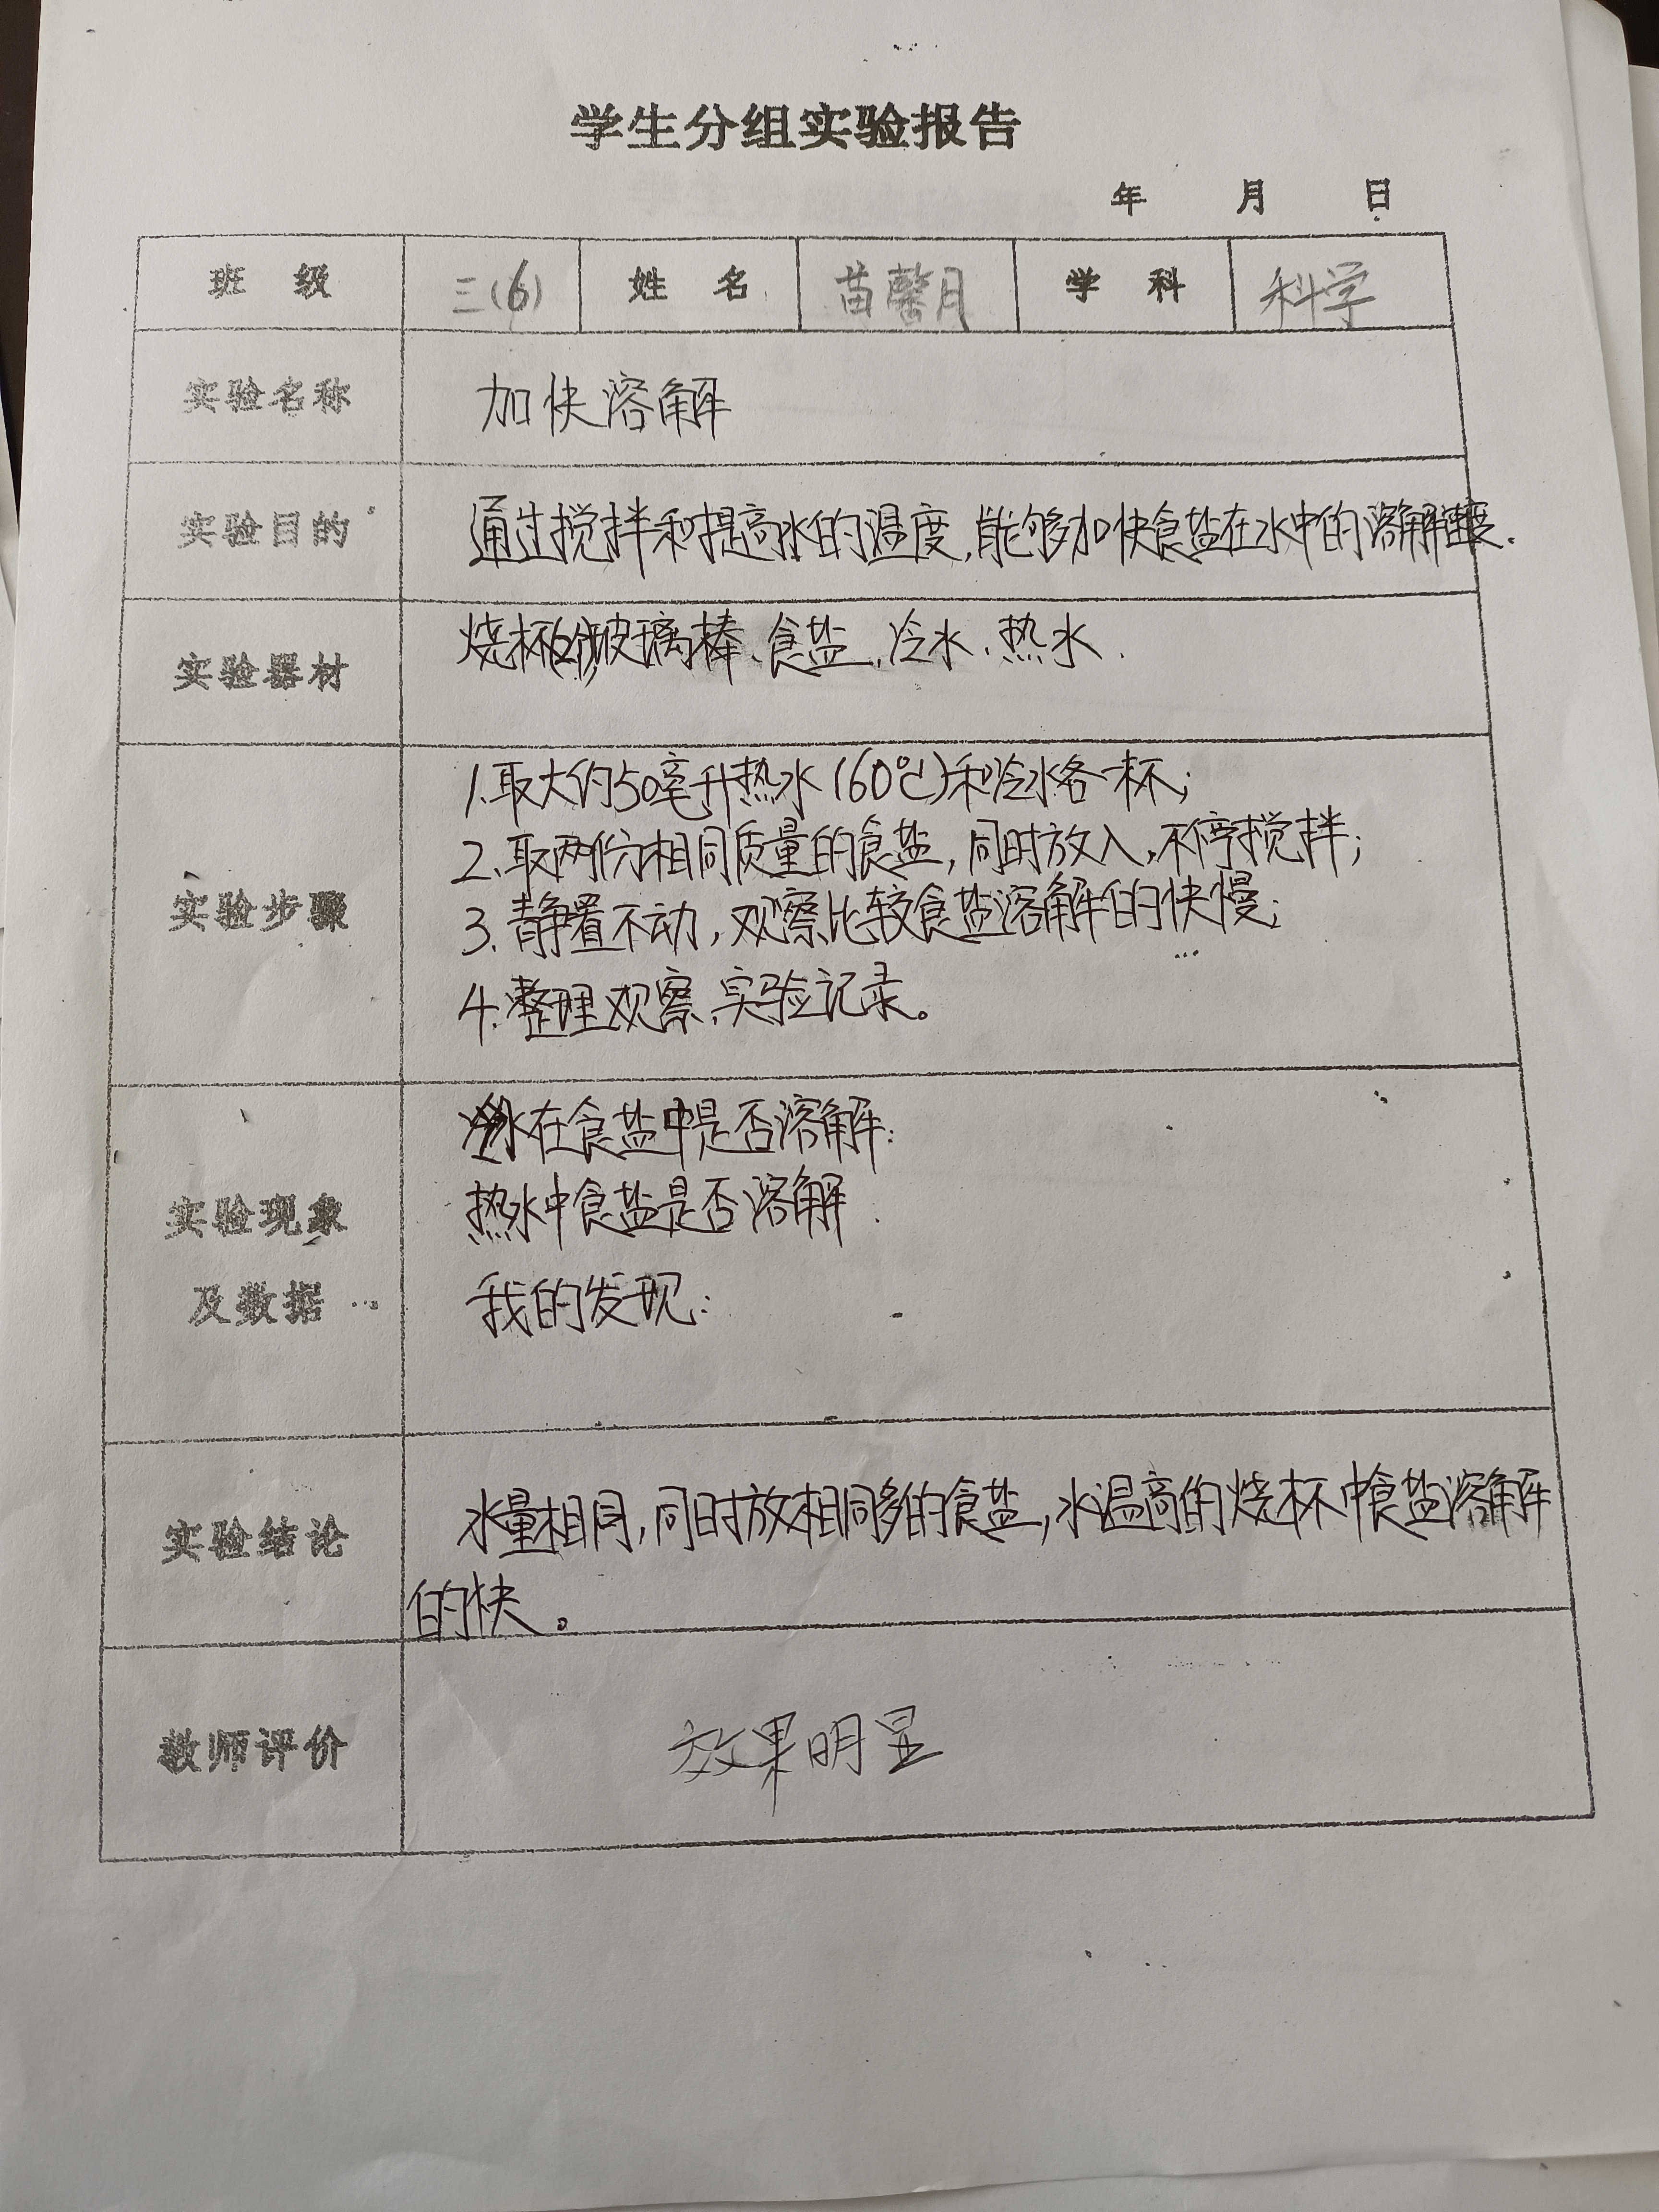 学生分组实验报告
年 月 日
班 级 三(6) 姓 名 苗馨月 学 科 科学
实验名称 加快溶解
实验目的 通过搅拌和提高水的温度,能够加快食盐在水中的溶解速度.
实验器材 烧杯(2个)玻璃棒、食盐、冷水、热水.
1.取大约50毫升热水(60℃)和冷水各一杯;
2.取两份相同质量的食盐,同时放入,不停搅拌;
实验步骤 3.静置不动,观察比较食盐溶解的快慢;
4.整理观察、实验记录。
水在食盐中是否溶解:
实验现象 热水中食盐是否溶解.
及数据 我的发现:
实验结论 水量相同,同时放相同多的食盐,水温高的烧杯中食盐溶解
的快。
教师评价 效果明显